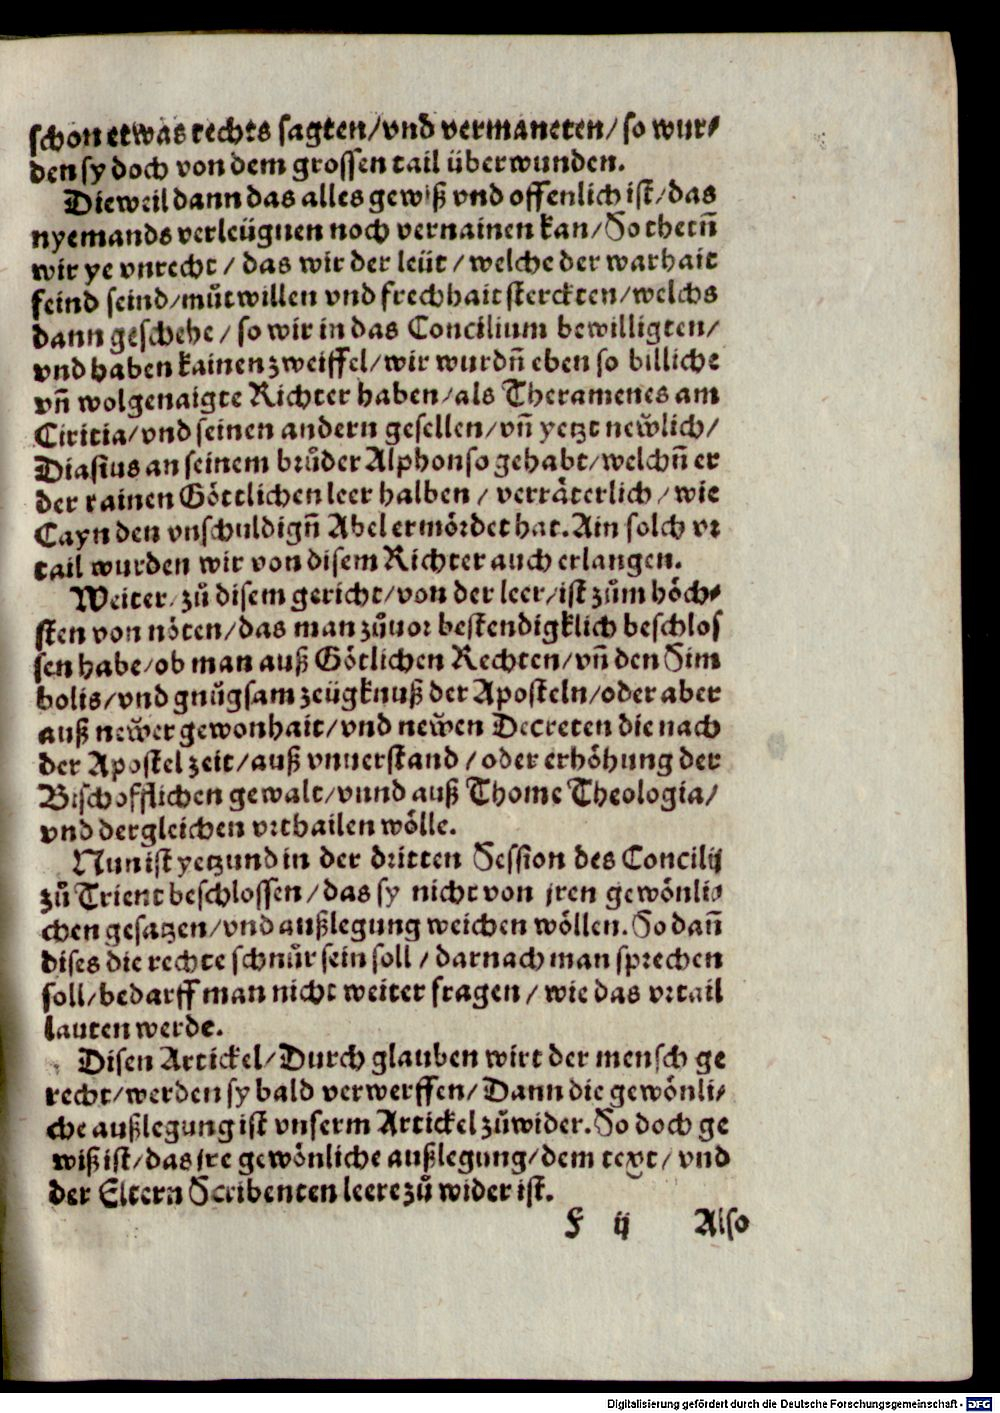 schon etwas rechts sagten/vnd vermaneten/so wur⸗
den sy doch von dem grossen tail überwunden.
Dieweil dann das alles gewiß vnd offenlich ist/das
nyemands verleügnen noch vernainen kan/So thetñ
wir ye vnrecht/das wir der leüt/welche der warhait
feind seind/můtwillen vnd frechhait sterckten/welchs
dann geschehe/so wir in das Concilium bewilligten/
vnd haben kainen zweiffel/wir wurdñ eben so billiche
vñ wolgenaigte Richter haben/als Theramenes am
Ciritia/vnd seinen andern gesellen/vñ yetzt newlich/
Diasius an seinem brůder Alphonso gehabt/welchñ er
der rainen Göttlichen leer halben/verräterlich/wie
Cayn den vnschuldigñ Abel ermördet hat. Ain solch vr
tail wurden wir von disem Richter auch erlangen.
Weiter/zů disem gericht/von der leer/ist zům höch⸗
sten von nöten/das man zůuor bestendigklich beschlos
sen habe/ob man auß Götlichen Rechten/vñ den Sim
bolis/vnd gnůgsam zeügknuß der Aposteln/oder aber
auß newer gewonhait/vnd newen Decreten die nach
der Apostel zeit/auß vnuerstand/oder erhöhung der
Bischofflichen gewalt/vnnd auß Thome Theologia/
vnd dergleichen vrthailen wölle.
Nun ist yetzund in der dritten Session des Concilij
zů Trient beschlossen/das sy nicht von jren gewönli⸗
chen gesatzen/vnd außlegung weichen wöllen. So dañ
dises die rechte schnůr sein soll/darnach man sprechen
soll/bedarff man nicht weiter fragen/wie das vrtail
lauten werde.
Disen Artickel/Durch glauben wirt der mensch ge
recht/werden sy bald verwerffen/Dann die gewönli⸗
che außlegung ist vnserm Artickel zůwider. So doch ge
wiß ist/das jre gewönliche außlegung/dem text/vnd
der Eltern Scribenten leere zů wider ist.
F ij Also
Digitalisierung gefördert durch die Deutsche Forschungsgemeinschaft - DFG